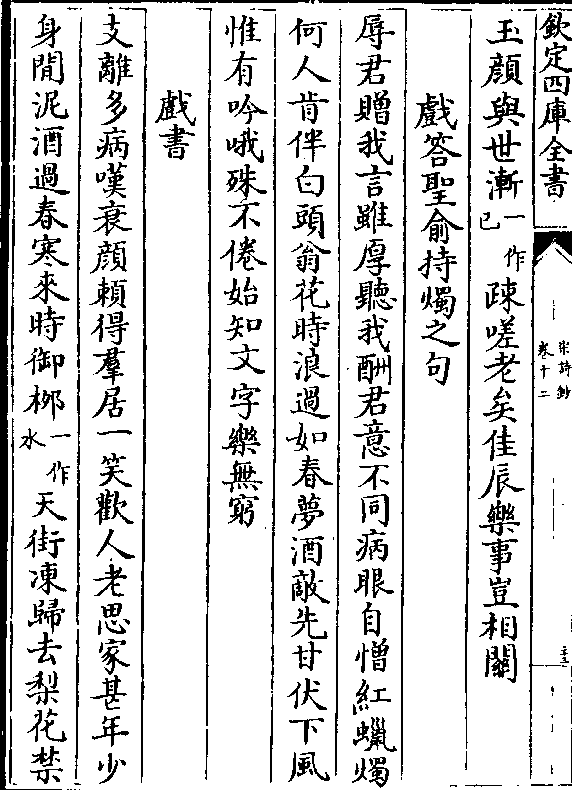 欽定四庫全書
宋詩鈔
卷十二
玉顔與世漸一作已疎嗟老矣佳辰樂事豈相關
戲答聖俞持燭之句
辱君贈我言雖厚聽我酬君意不同病眼自憎紅蠟燭
何人肯伴白頭翁花時浪過如春夢酒敵先甘伏下風
惟有吟哦殊不倦始知文字樂無窮
戲書
支離多病嘆衰顔頼得羣居一笑歡人老思家甚年少
身閒泥酒過春寒來時御栁一作水天街凍歸去梨花禁